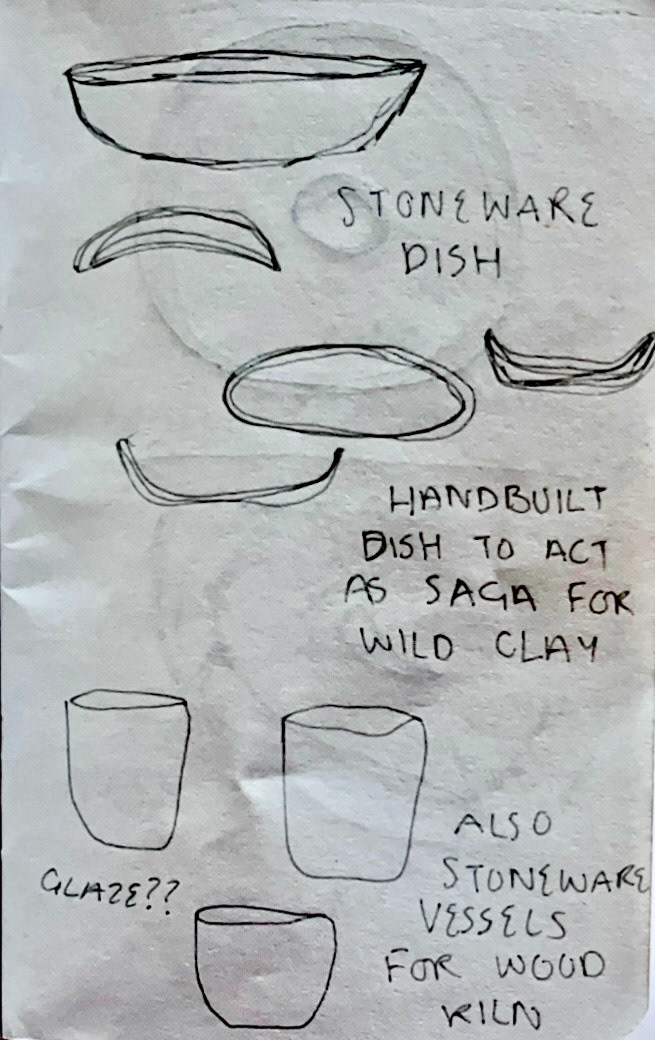 STONEWARE
DISH
HANDBUILT
DISH TO ACT
AS SAGA FOR
WILD CLAY
ALSO
STONEWARE
VESSELS
FOR WOOD
KILN
GLAZE??